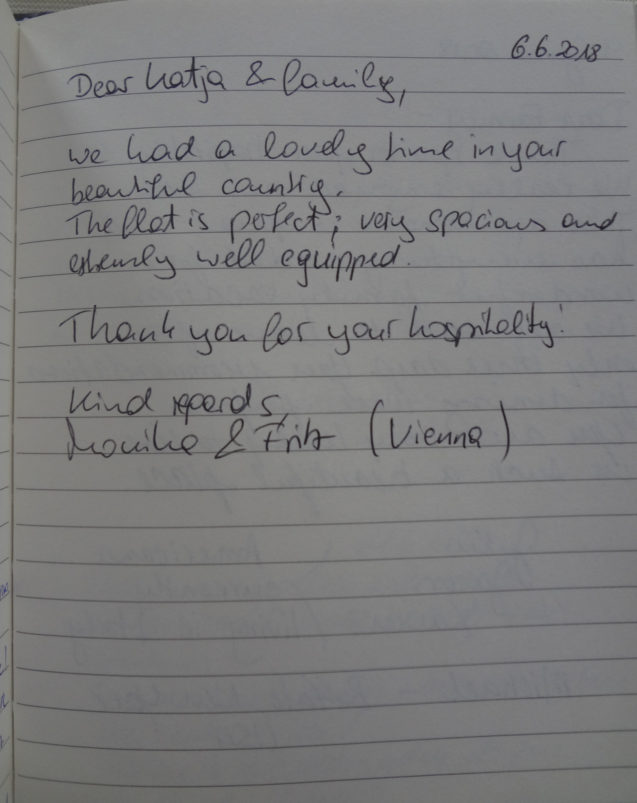 6.6.2018
Dear Katja & family,
we had a lovely time in your
beautiful country.
The flat is perfect; very spacious and
extremely well equipped.
Thank you for your hospitality!
Kind regards,
Monika & Fritz (Vienna)